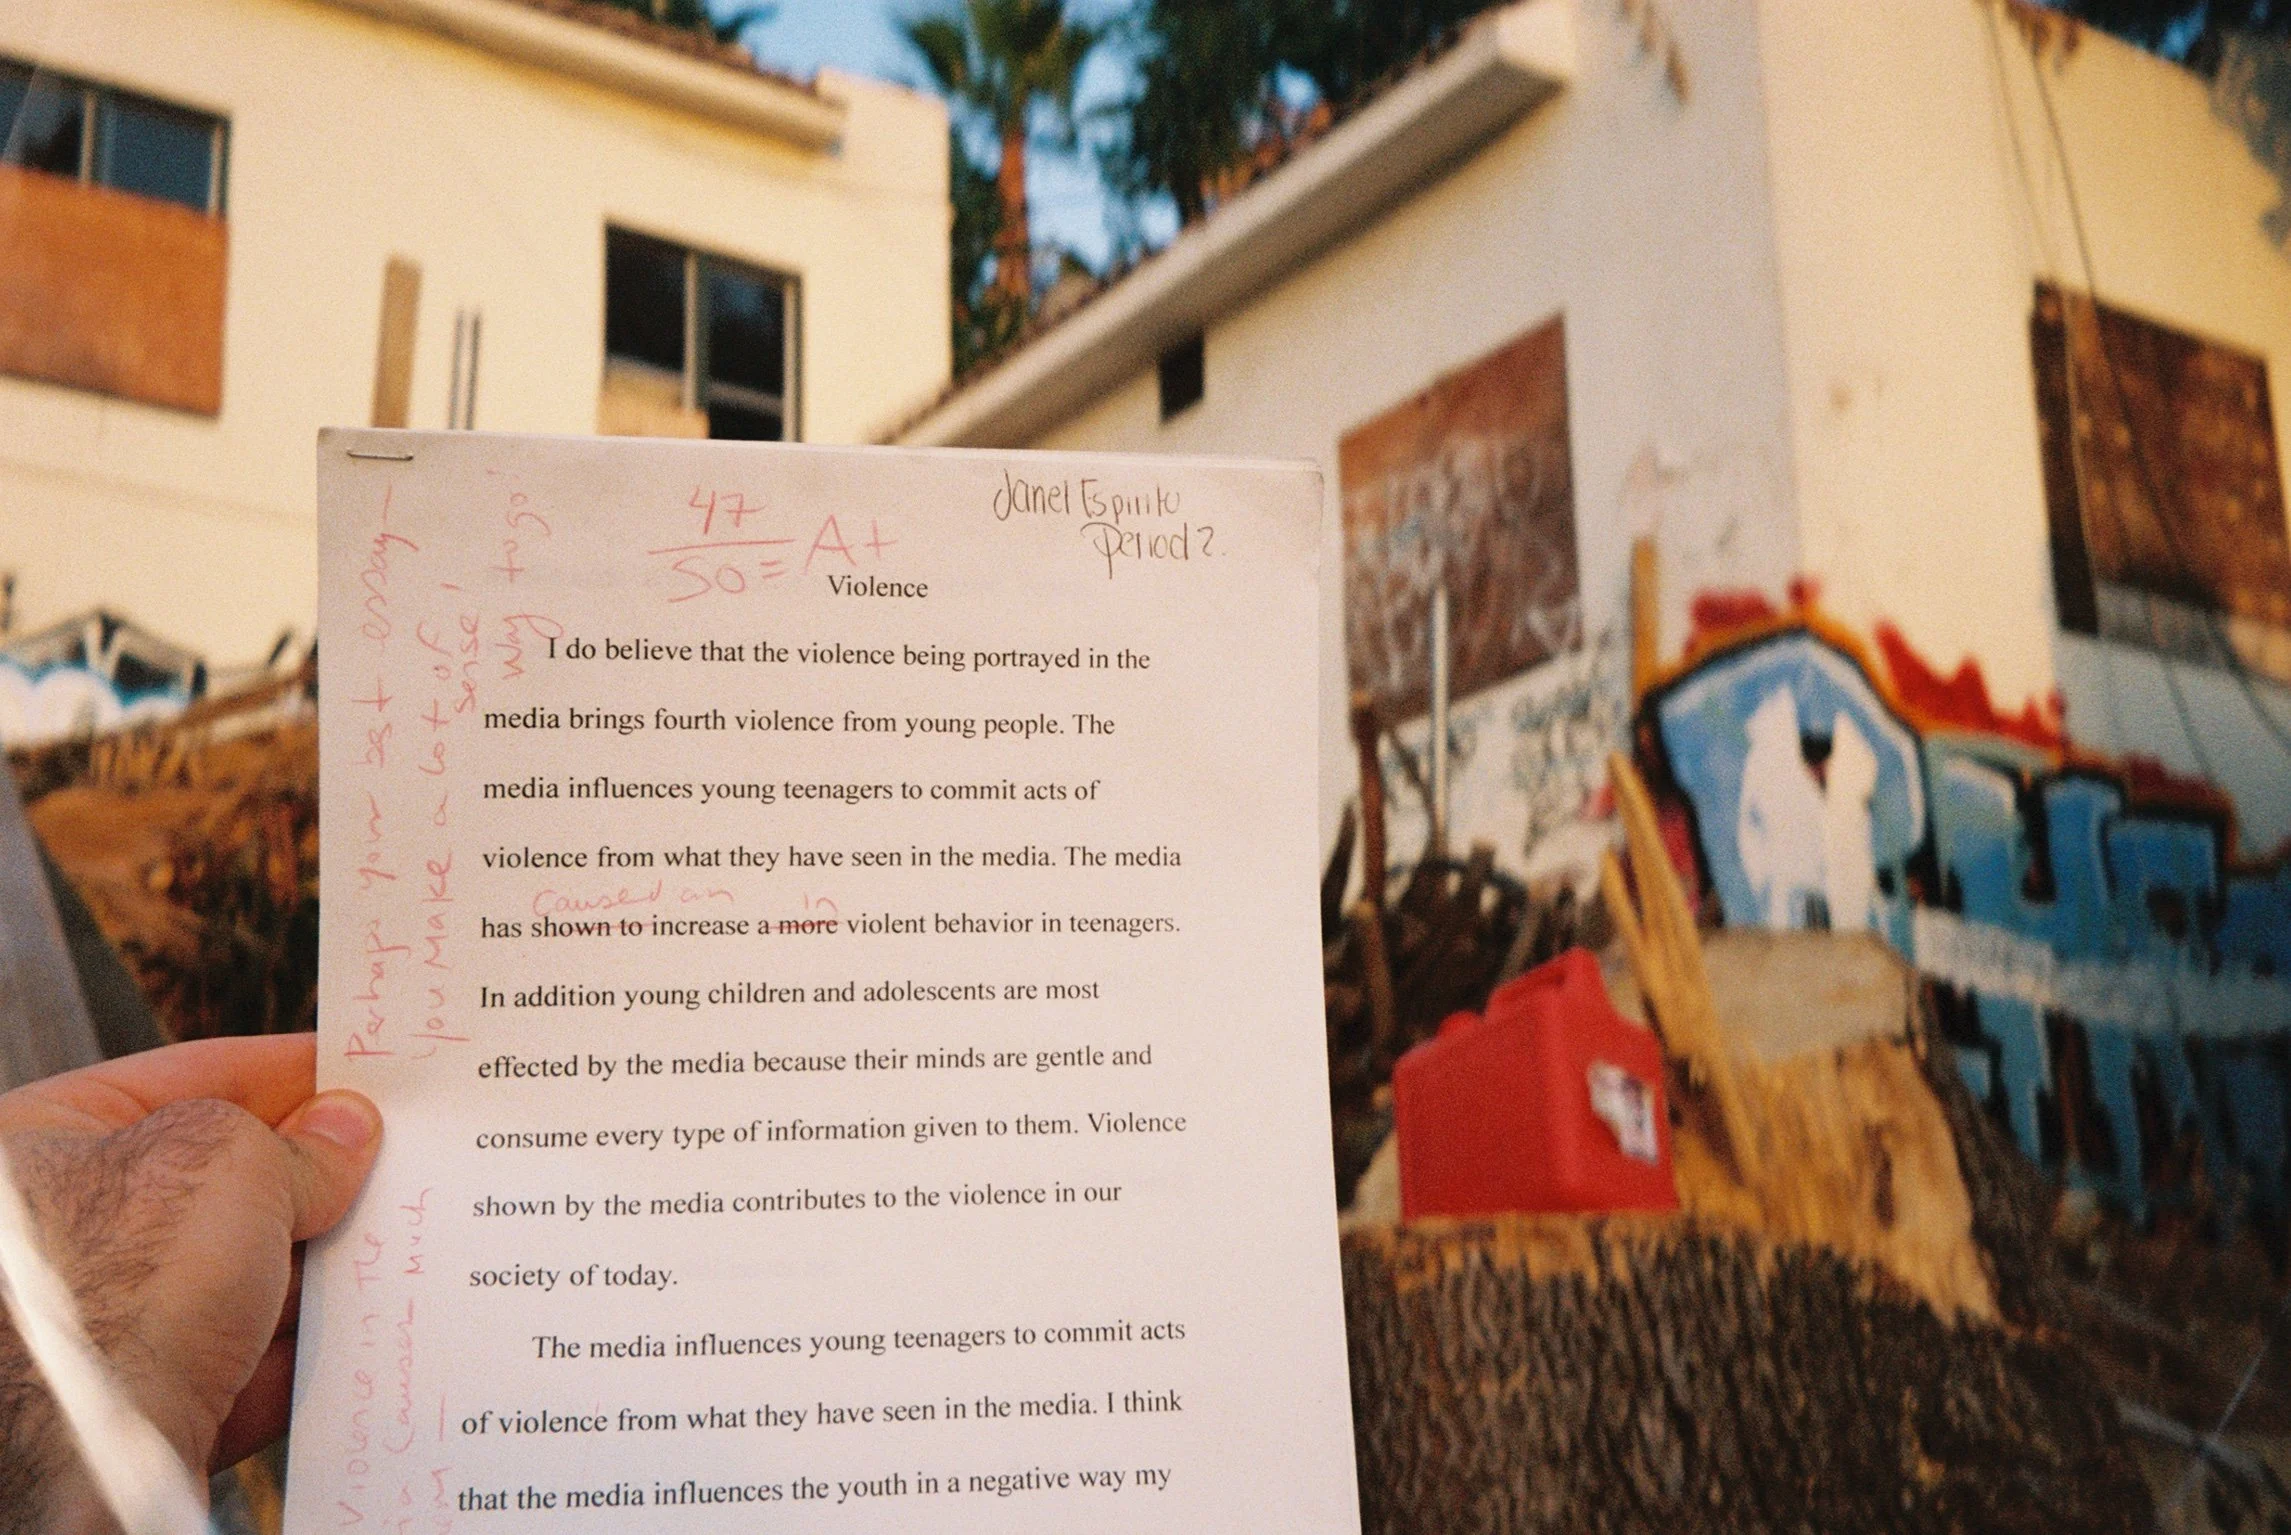 Janel Espiritu
Period 2.
47
50 = A+
Way to go!
Perhaps your best essay—
you make a lot of
sense!
Violence
I do believe that the violence being portrayed in the
media brings fourth violence from young people. The
media influences young teenagers to commit acts of
violence from what they have seen in the media. The media
caused an in
has shown to increase a more violent behavior in teenagers.
In addition young children and adolescents are most
effected by the media because their minds are gentle and
consume every type of information given to them. Violence
shown by the media contributes to the violence in our
society of today.
The media influences young teenagers to commit acts
of violence from what they have seen in the media. I think
that the media influences the youth in a negative way my
Violence in the
causes much